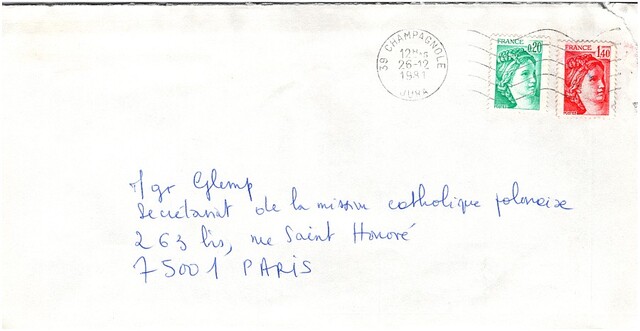 39 CHAMPAGNOLE
12H
26-12
1981
JURA
FRANCE
0,20
FRANCE
1,40
Mgr Glemp
Secrétariat de la mission catholique polonaise
263 bis, rue Saint Honoré
75001 PARIS